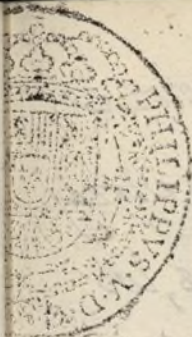 PHILIPPVS·V·D·